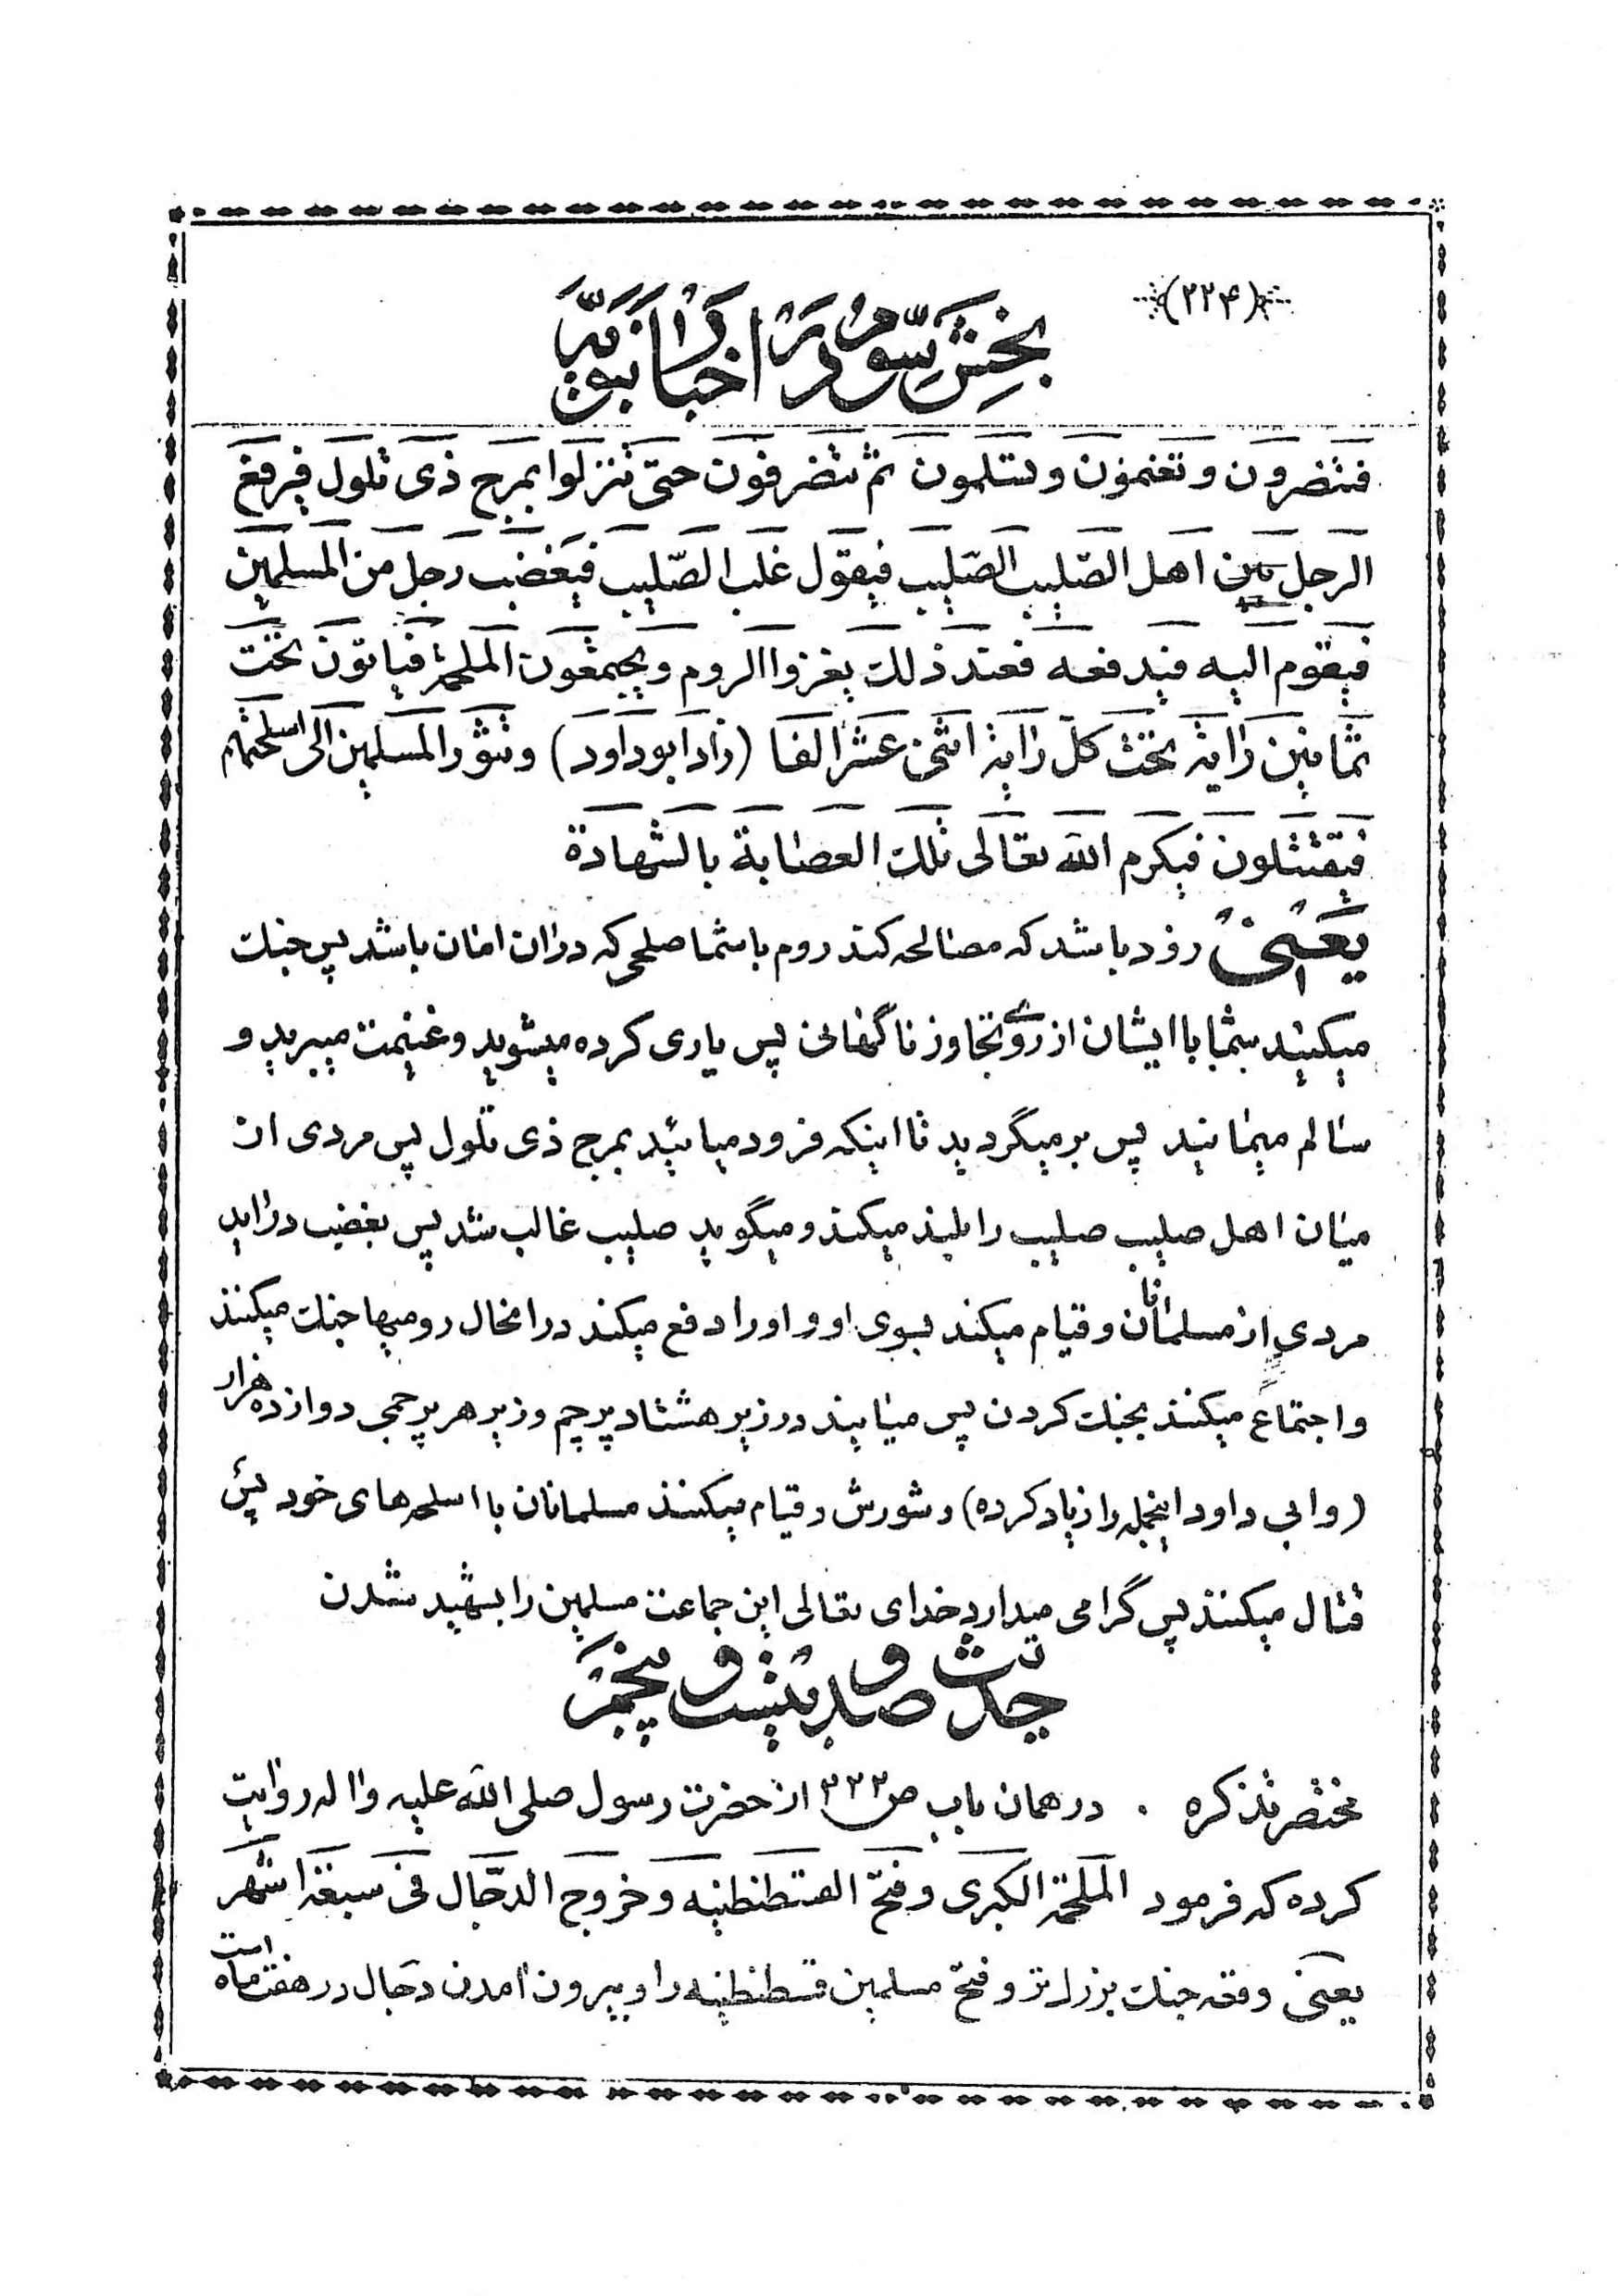 (۲۲۴)
بخش سوم در اخبار نبویه
فتنصرون و تغنمون و تسلمون ثم تنصرفون حتی تنزلوا بمرج ذی تلول فیرفع
الرجل من اهل الصلیب الصلیب فیقول غلب الصّلیب فیغضب رجل من المسلمین
فیقوم الیه فیدفعه فعند ذلك یغزوا الروم و یجمعون الملحمة فیاتون تحت
ثمانین رایة تحت کلّ رایة اثنی عشر الفا (زاد ابوداود) و یثور المسلمین الی اسلحتهم
فیقتتلون فیکرم الله تعالی تلك العصابة بالشهادة
یعنی زود باشد که مصالحه کند روم با شما صلحی که در ان امان باشد پس جنك
میکنند شما با ایشان از روی تجاوز ناگهانی پس یاری کرده میشوید و غنیمت میبرید و
سالم میمانید پس برمیگردید تا اینکه فرود میائید بمرج ذی تلول پس مردی از
میان اهل صلیب صلیب را بلند میکند و میگوید صلیب غالب شد پس بغضب دراید
مردی از مسلمانان و قیام میکند بسوی او و او را دفع میکند در انحال رومیها جنك میکنند
و اجتماع میکنند بجنك کردن پس میایند در زیر هشتاد پرچم و زیر هر پرچمی دوازده هزار
(و ابی داود اینجمله را زیاد کرده) و شورش و قیام میکنند مسلمانان با اسلحه‌های خود پس
قتال میکنند پس گرامی میدارد خدای تعالی این جماعت مسلمین را بشهید شدن
حدیث صد و بیست و پنجم
مختصر تذکره . در همان باب ص ۲۲۲ از حضرت رسول صلی الله علیه و اله روایت
کرده که فرمود الملحمة الکبری و فتح القسطنطنیه و خروج الدجّال فی سبعة اشهر
یعنی وقعه جنك بزرك‌تر و فتح مسلمین قسطنطنیه را و بیرون امدن دجال در هفت ماه است